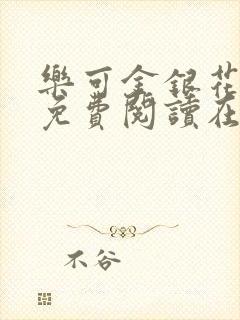 樂可金銀花
免費閱讀在
不谷